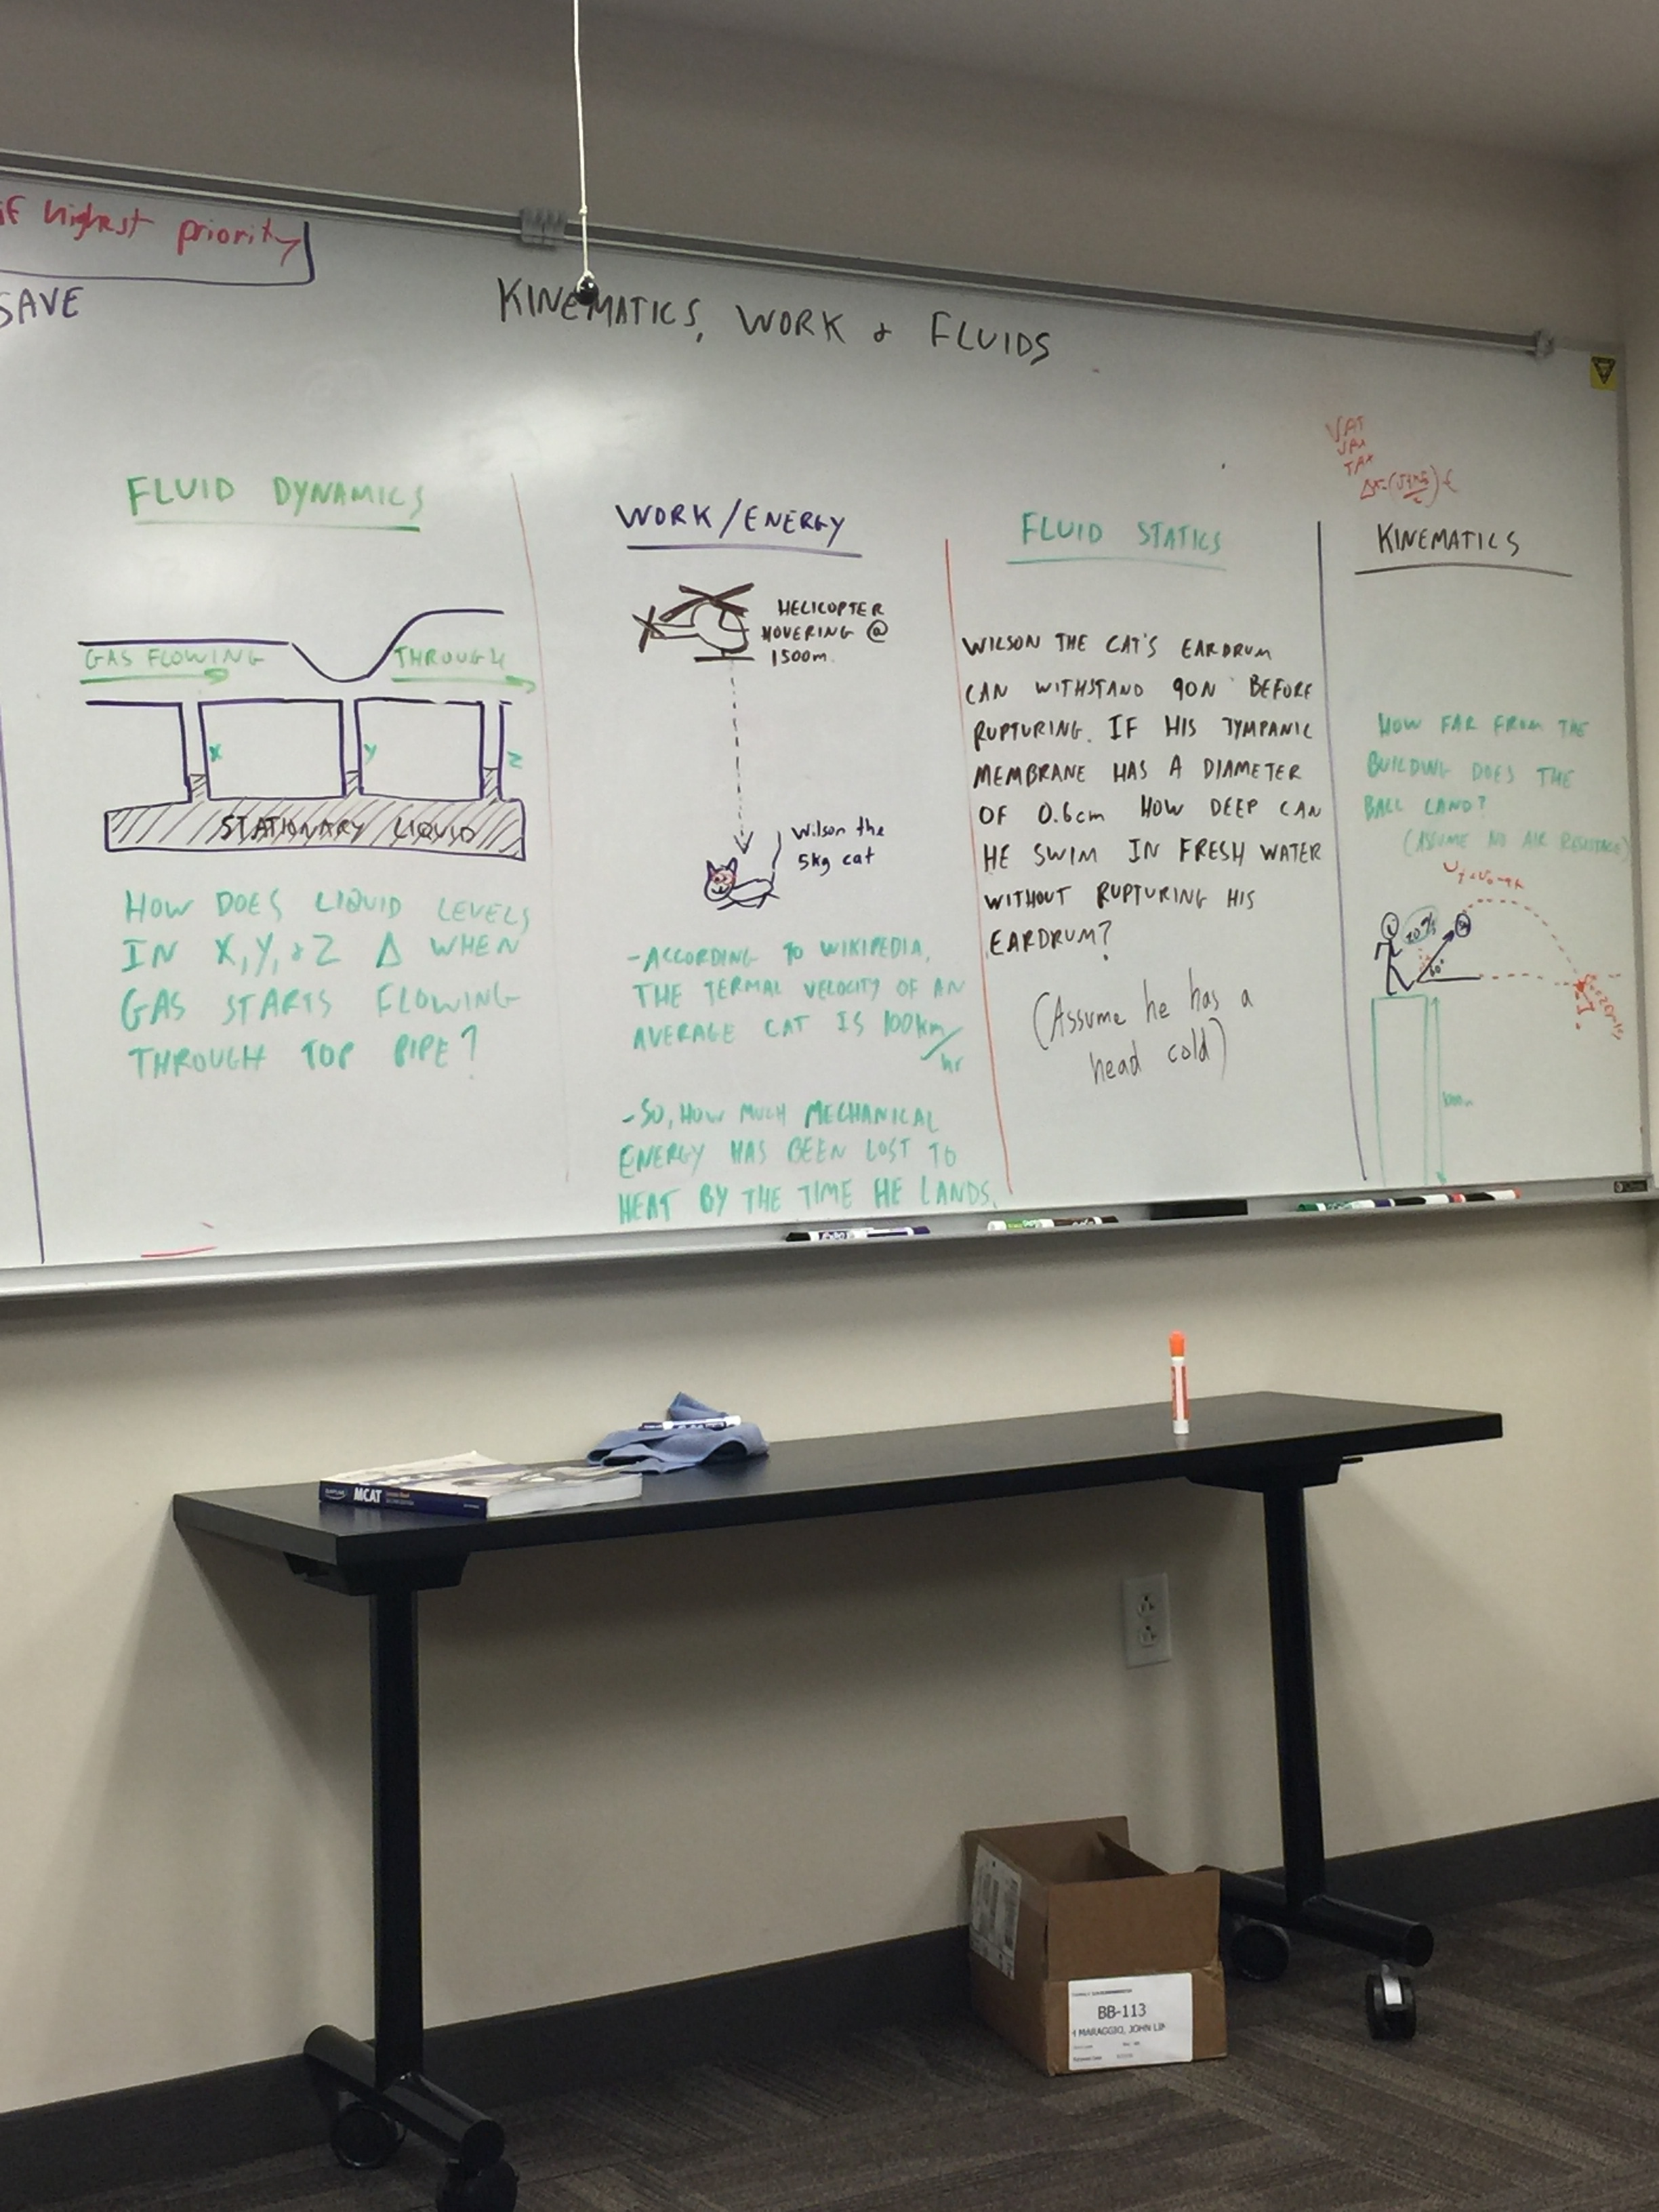 if highest priority
SAVE
KINEMATICS, WORK & FLUIDS
FLUID DYNAMICS
GAS FLOWING
THROUGH
X
Y
Z
STATIONARY LIQUID
HOW DOES LIQUID LEVELS
IN X, Y, & Z Δ WHEN
GAS STARTS FLOWING
THROUGH TOP PIPE?
WORK/ENERGY
HELICOPTER
HOVERING @
1500m
Wilson the
5kg cat
-ACCORDING TO WIKIPEDIA,
THE TERMAL VELOCITY OF AN
AVERAGE CAT IS 100km/
hr
-SO, HOW MUCH MECHANICAL
ENERGY HAS BEEN LOST TO
HEAT BY THE TIME HE LANDS.
FLUID STATICS
WILSON THE CAT'S EARDRUM
CAN WITHSTAND 90N BEFORE
RUPTURING. IF HIS TYMPANIC
MEMBRANE HAS A DIAMETER
OF 0.6cm HOW DEEP CAN
HE SWIM IN FRESH WATER
WITHOUT RUPTURING HIS
EARDRUM?
(Assume he has a
head cold)
VAT
TAX
KINEMATICS
HOW FAR FROM THE
BUILDING DOES THE
BALL LAND?
(ASSUME NO AIR RESISTANCE)
60°
MCAT
BB-113
MARAGGIO, JOHN